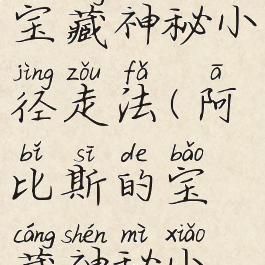 宝藏神秘小
jìng zǒu fǎ ā
径走法(阿
bǐ sī de bǎo
比斯的宝
cáng shén mì xiǎo
藏神秘小